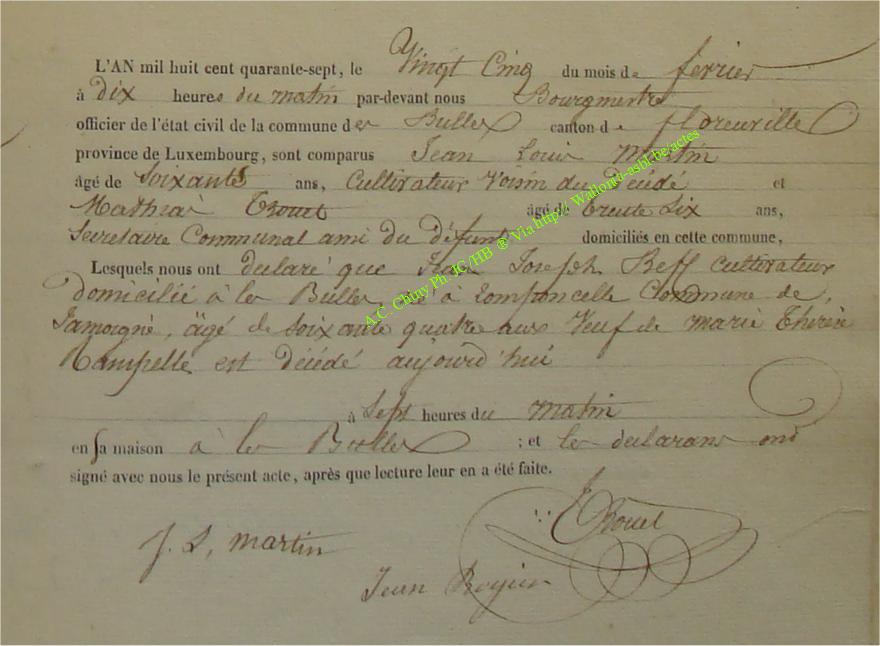 L'AN mil huit cent quarante-sept, le Vingt Cinq du mois de fevrier
à dix heures du matin par-devant nous Bourgmestre
officier de l'état civil de la commune de Bulles canton de floreuville
province de Luxembourg, sont comparus Jean Louis Martin
âgé de Soixante ans, Cultivateur Voisin du Décédé et
Mathias Trouet âgé de trente Six ans,
Secretaire Communal ami du défunt domiciliés en cette commune,
Lesquels nous ont declaré que Jean Joseph Reff Cultivateur
domicilié à les Bulles né à Commune de
Jamoigne, âgé de Soixante quatre ans Veuf de marie Thérèse
est décédé aujourd'hui
à Sept heures du matin
en sa maison à les Bulles ; et les declarans ont
signé avec nous le présent acte, après que lecture leur en a été faite.
Trouet
J. L, martin
Jean
A.C. Chiny Ph JC/HB ® Via http:// Wallonia-asbl.be/actes